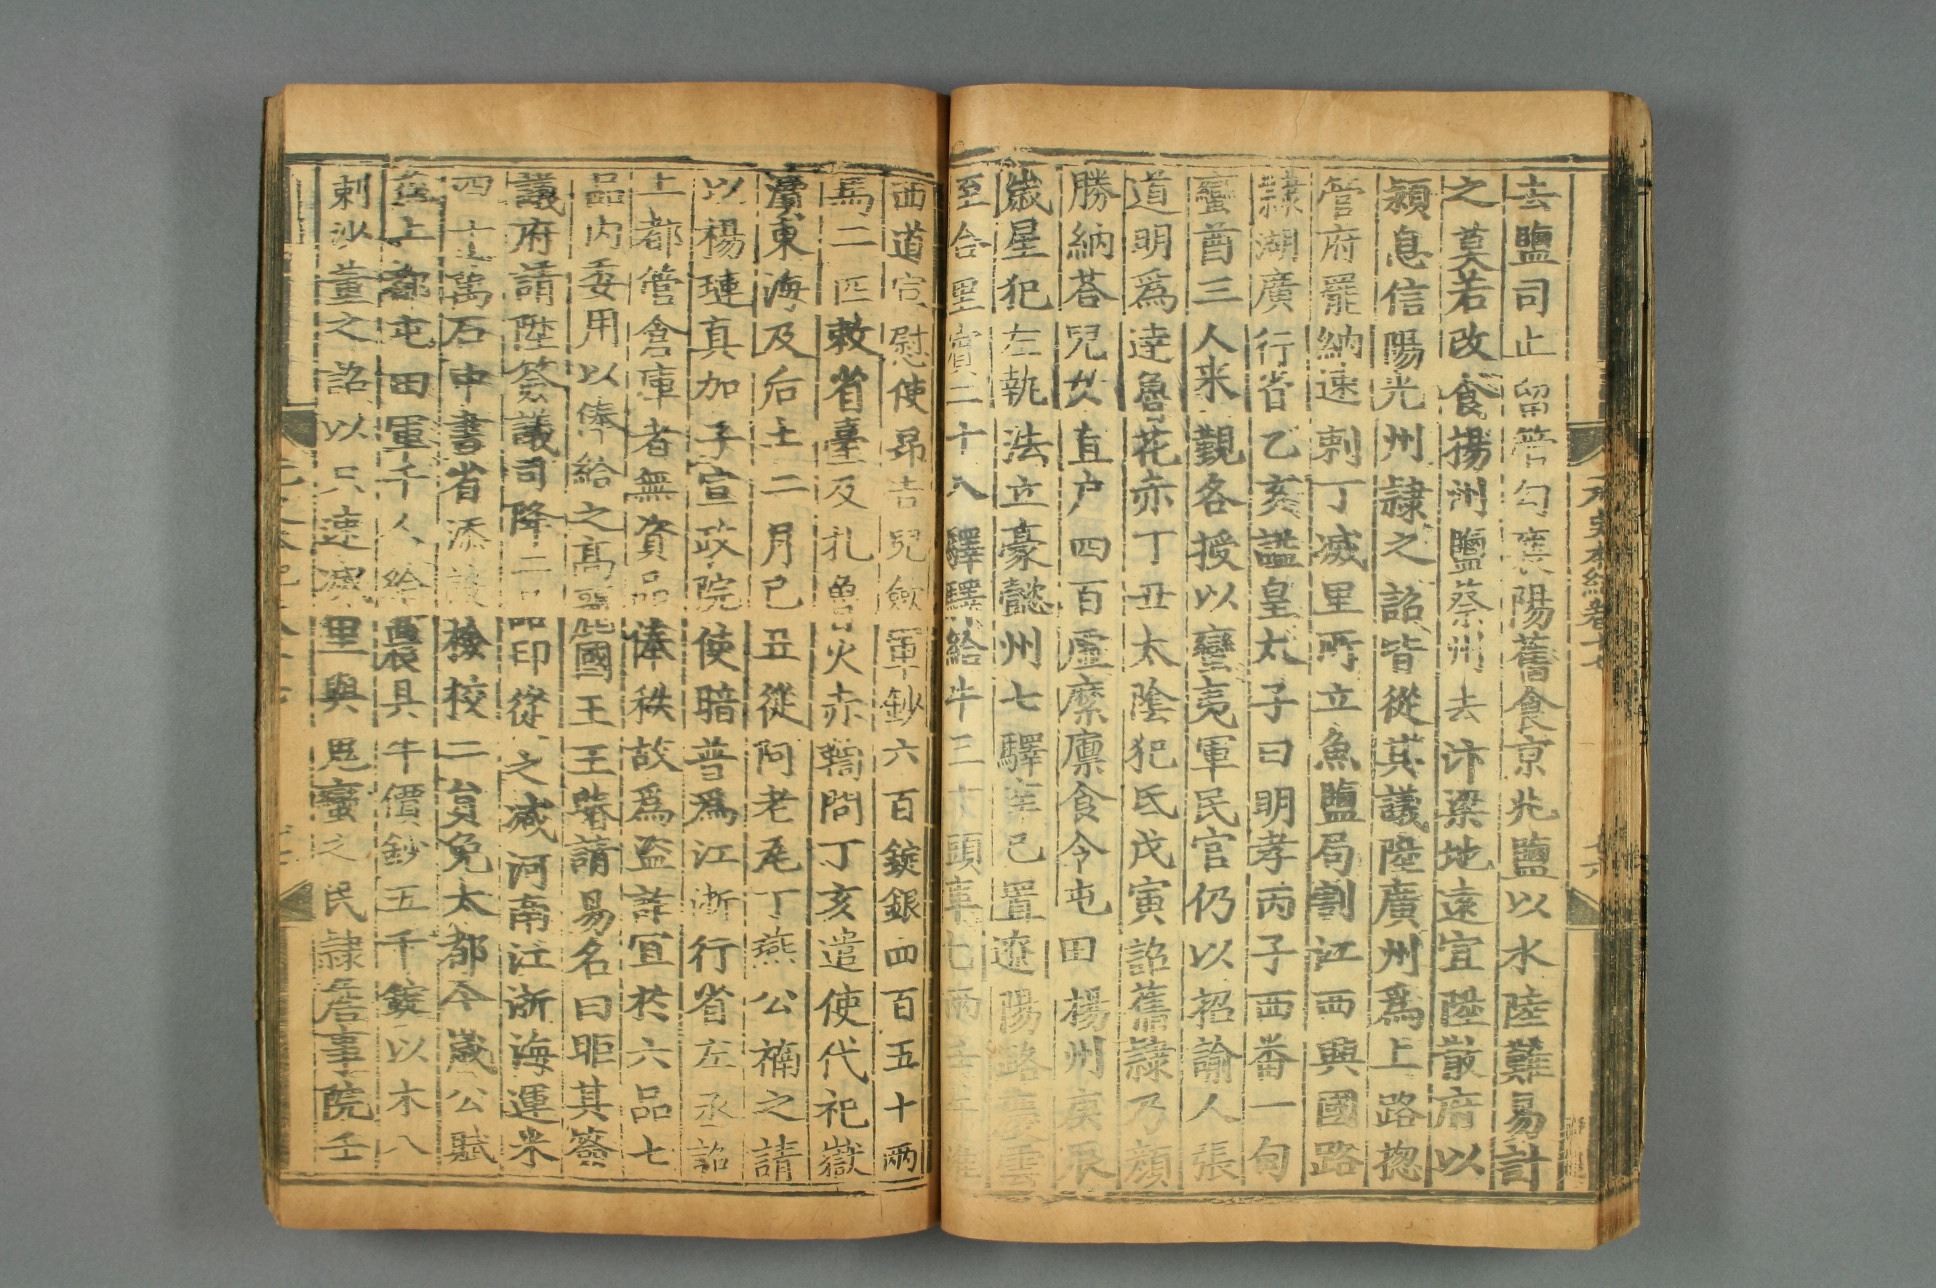 元史本紀卷十七
去鹽司止留管勾襄陽舊食京兆鹽以水陸難易計
之莫若改食揚州鹽蔡州去汴梁地遠宜陞散府以
潁息信陽光州隷之詔皆從其議陞廣州爲上路摠
管府罷納速剌丁滅里所立魚鹽局割江西興國路
隷湖廣行省乙亥謚皇太子曰明孝丙子西番一甸
蠻酋三人來覲各授以蠻夷軍民官仍以招諭人張
道明爲達魯花赤丁丑太陰犯氐戊寅詔舊隷乃顏
勝納荅兒女直户四百虛縻廪食令屯田揚州庚辰
歲星犯左執法立豪懿州七驛 巳置遼陽路慶雲
至合里賔二十八驛驛給牛三十頭車七兩
西道宣慰使昂吉兒歛軍鈔六百錠銀四百五十兩
馬二匹敕省臺及扎魯火赤鞫問丁亥遣使代祀嶽
瀆東海及后土二月己丑從阿老瓦丁燕公楠之請
以楊璉真加子宣政院使暗普爲江浙行省左丞詔
上都管倉庫者無資品俸秩故爲盗詐宜於六品七
品内委用以俸給之高麗國王王賰請易名曰昛其簽
議府請陞簽議司降二品印從之减河南江浙海運米
四十萬石中書省添設檢校二員免大都今歲公賦
益上都屯田軍千人給農具牛價鈔五千錠以木八
剌沙董之詔以只速滅里與鬼蠻之民隷詹事院壬